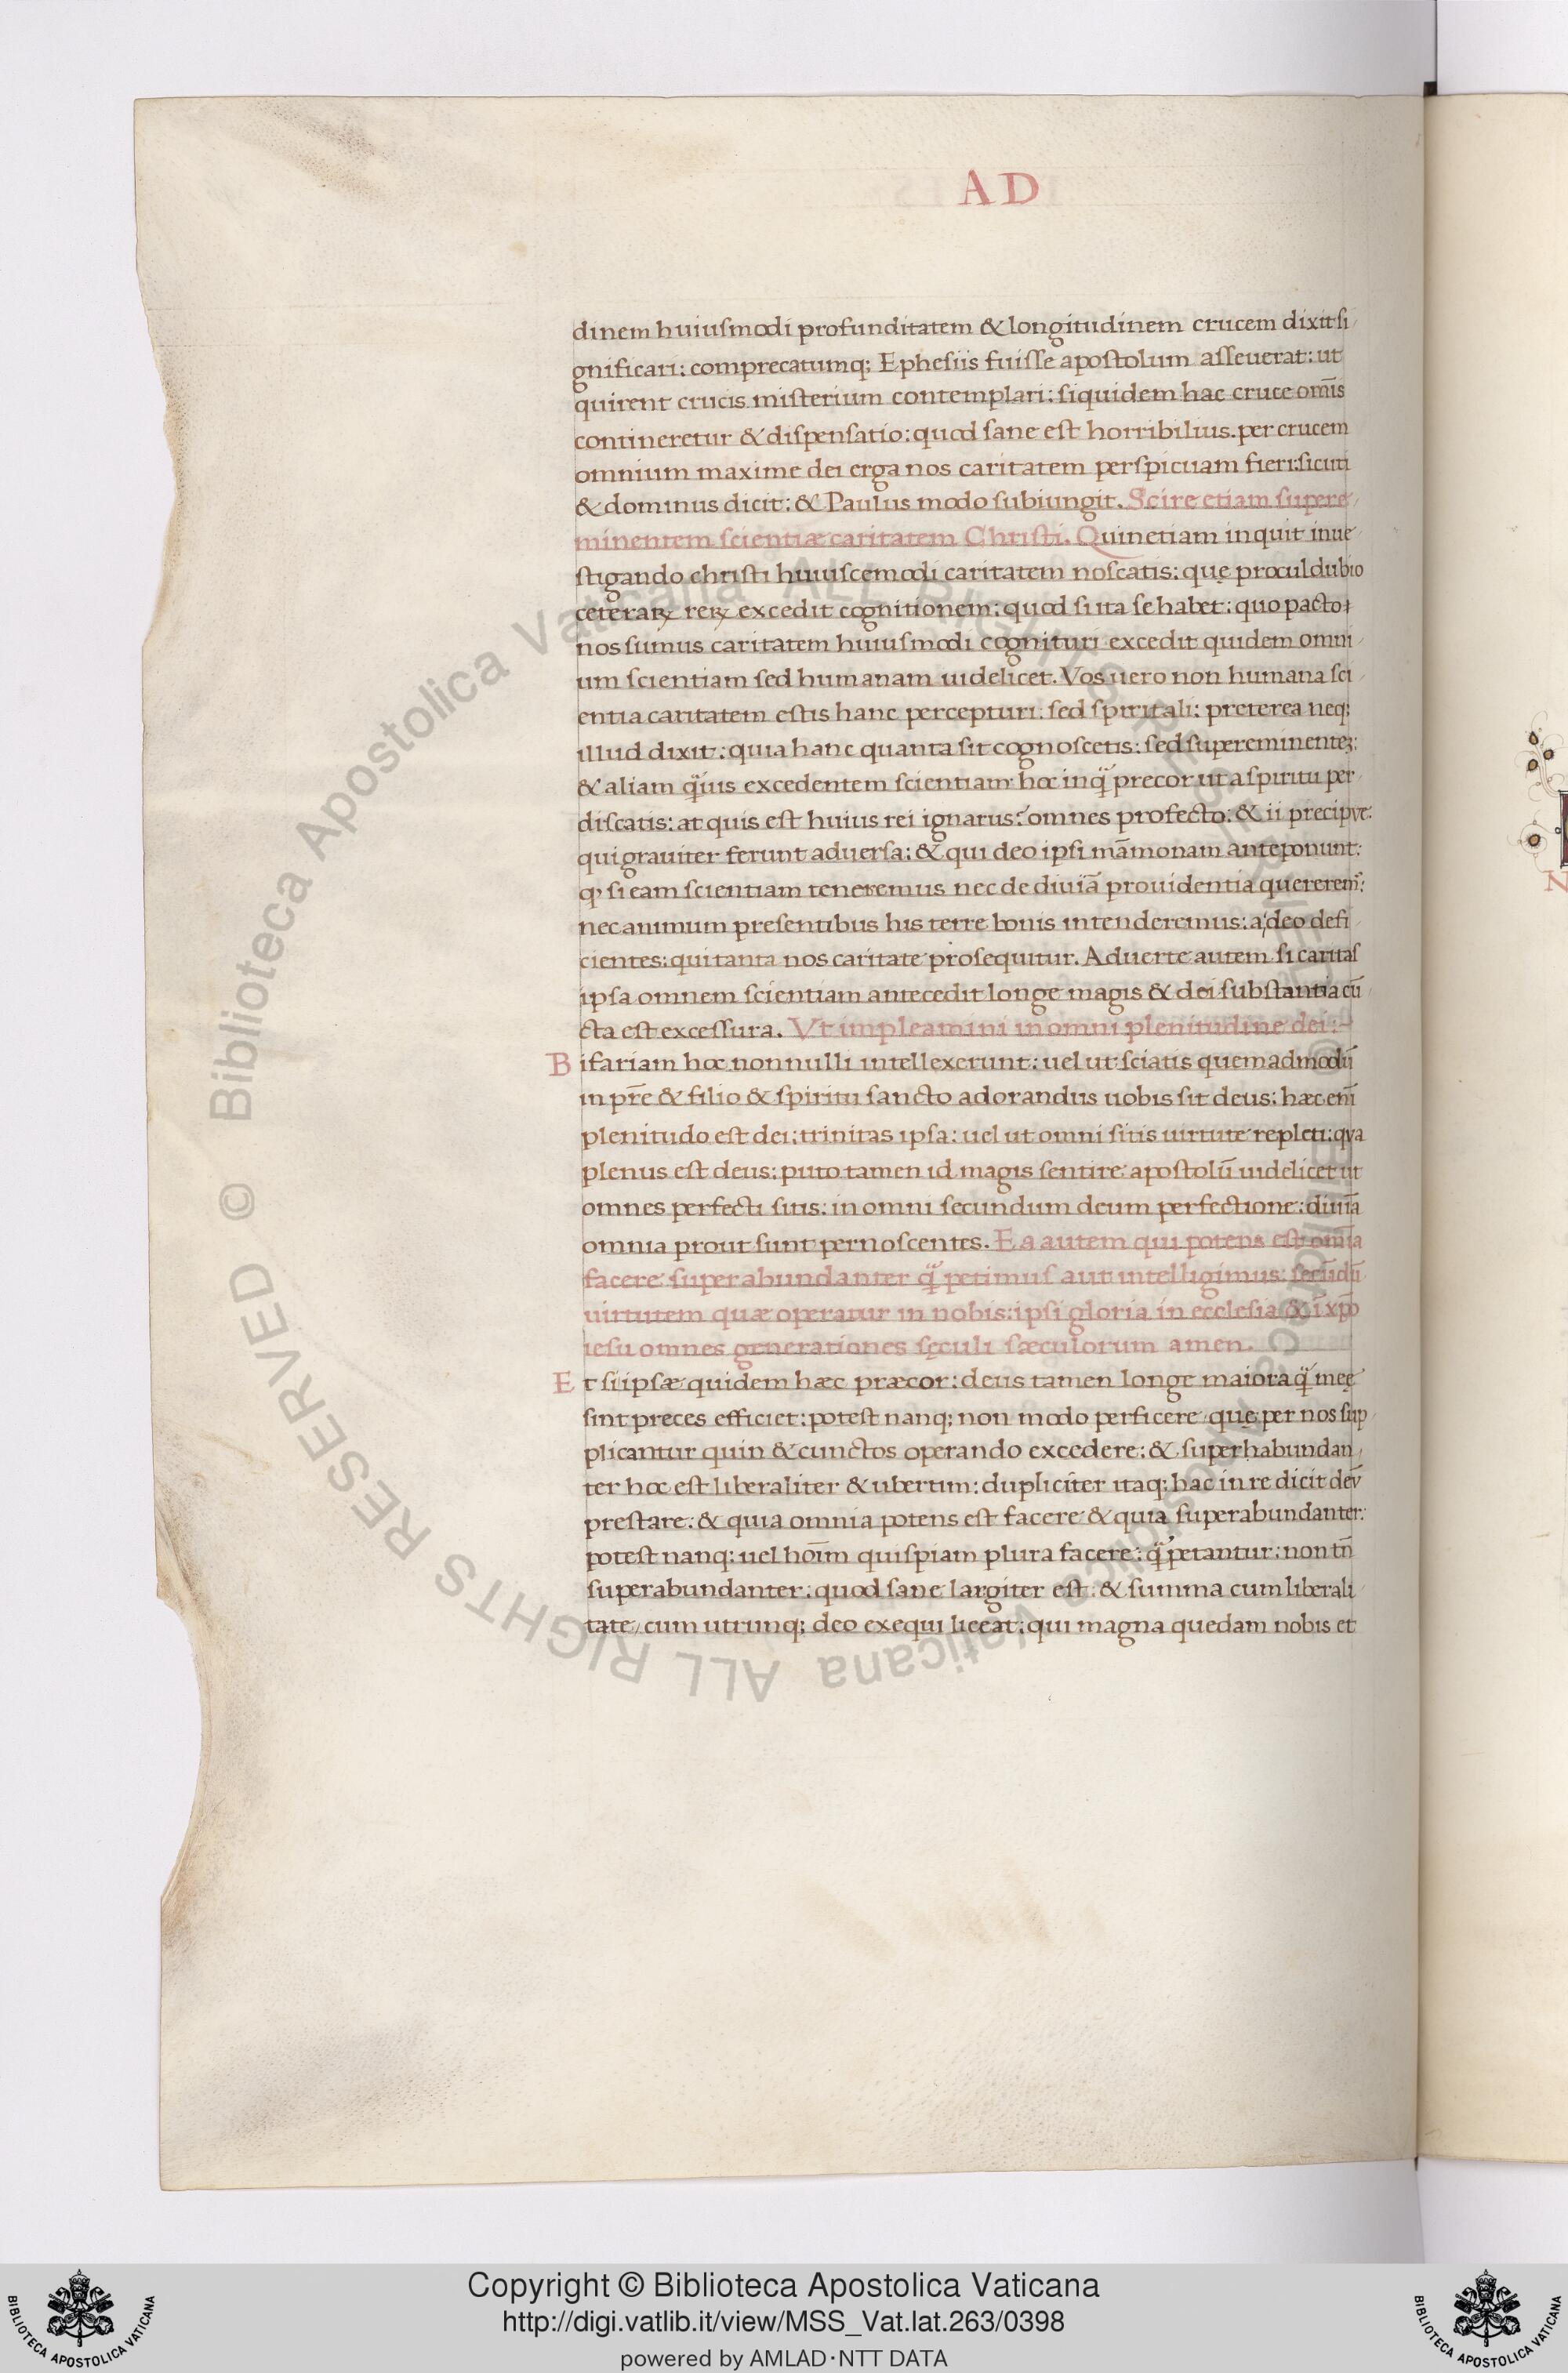 AD
dinem huiuſmodi profunditatem & longitudinem crucem dixit ſi
gnificari: comprecatumq; Epheſiis fuiſſe apoſtolum aſſeuerat: ut
quirent crucis miſterium contemplari: ſiquidem hac cruce om̄is
contineretur & diſpenſatio: quod ſane eſt horribilius. per crucem
omnium maxime dei erga nos caritatem perſpicuam fieri: ſicuti
& dominus dicit: & Paulus modo ſubiungit. Scire etiam ſupere
minentem ſcientiæ caritatem Chriſti. Quinetiam inquit inue
ſtigando chriſti huiuſcemodi caritatem noſcatis: quę procul dubio
ceteraꝝ reꝝ excedit cognitionem: quod ſi ita ſe habet: quo pacto
nos ſumus caritatem huiuſmodi cognituri excedit quidem omni
um ſcientiam ſed humanam uidelicet. Vos uero non humana ſci
entia caritatem eſtis hanc percepturi: ſed ſpiritali: preterea neq;
illud dixit: quia hanc quanta ſit cognoſcetis: ſed ſupereminentez:
& aliam q̈uis excedentem ſcientiam: hoc inq̈ precor ut a ſpiritu per
diſcatis: at quis eſt huius rei ignarus? omnes profecto: & ii precipue:
qui grauiter ferunt aduerſa: & qui deo ipſi mām̄onam anteponunt:
ꝙ ſi eam ſcientiam teneremus nec de diuīa prouidentia quererem᷒:
nec animum preſentibus his terre bonis intenderemus: a deo defi
cientes: qui tanta nos caritate proſequitur. Aduerte autem ſi caritaſ
ipſa omnem ſcientiam antecedit longe magis & dei ſubſtantia cū
cta eſt exceſſura. Vt impleamini in omni plenitudine dei:
Bifariam hoc nonnulli intellexerunt: uel ut ſciatis quemadmodū
in pr̄e & filio & ſpiritu ſancto adorandus uobis ſit deus: hæc enī
plenitudo eſt dei: trinitas ipſa: uel ut omni ſitis uirtute repleti: qua
plenus eſt deus: puto tamen id magis ſentire apoſtolū uidelicet ut
omnes perfecti ſitis: in omni ſecundum deum perfectione: diuīa
omnia prout ſunt pernoſcentes. Ea autem qui potens eſt om̄ia
facere ſuperabundanter q̈ petimuſ aut intelligimus: ſecūdū
uirtutem quæ operatur in nobis: ipſi gloria in eccleſia & ī xp̄o
ieſu omnes generationes ſęculi ſæculorum amen.
Et ſi ipſæ quidem hæc præcor: deus tamen longe maiora q̈ meę
ſint preces efficiet: poteſt nanq; non modo perficere quę per nos ſup
plicantur quin & cunctos operando excedere: & ſuperhabundan
ter hoc eſt liberaliter & ubertim: dupliciter itaq; hac in re dicit deū
preſtare: & quia omnia potens eſt facere & quia ſuperabundanter:
poteſt nanq; uel hoīm quiſpiam plura facere: q̈ petantur: non tn̄
ſuperabundanter: quod ſane largiter eſt: & ſumma cum liberali
tate, cum utrunq; deo exequi liceat: qui magna quedam nobis et
© Biblioteca Apostolica Vaticana ALL RIGHTS RESERVED
© Biblioteca Apostolica Vaticana ALL RIGHTS RESERVED
Copyright © Biblioteca Apostolica Vaticana
http://digi.vatlib.it/view/MSS_Vat.lat.263/0398
powered by AMLAD·NTT DATA
BIBLIOTECA APOSTOLICA VATICANA
BIBLIOTECA APOSTOLICA VATICANA